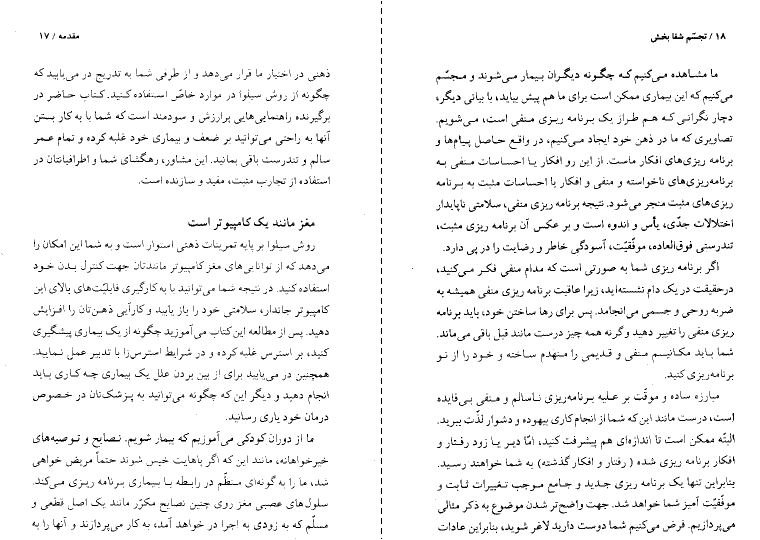 مقدمه / ۱۷
ذهنی در اختیار ما قرار می‌دهد و از طرفی شما به تدریج در می‌یابید که
چگونه از روش سیلوا در موارد خاصّ استفاده کنید. کتاب حاضر در
برگیرنده راهنمایی‌هایی پرارزش و سودمند است که شما با به کار بستن
آنها به راحتی می‌توانید بر ضعف و بیماری خود غلبه کرده و تمام عمر
سالم و تندرست باقی بمانید. این مشاور، رهگشای شما و اطرافیانتان در
استفاده از تجارب مثبت، مفید و سازنده است.
مغز مانند یک کامپیوتر است
روش سیلوا بر پایه تمرینات ذهنی استوار است و به شما این امکان را
می‌دهد که از توانایی‌های مغز کامپیوتر مانندتان جهت کنترل بدن خود
استفاده کنید. در نتیجه شما می‌توانید با به کارگیری قابلیّت‌های بالای این
کامپیوتر جاندار، سلامتی خود را باز یابید و کارآیی ذهن‌تان را افزایش
دهید. پس از مطالعه این کتاب می‌آموزید چگونه از یک بیماری پیشگیری
کنید، بر استرس غلبه کرده و در شرایط استرس‌زا با تدبیر عمل نمایید.
همچنین در می‌یابید برای از بین بردن علل یک بیماری چه کاری باید
انجام دهید و دیگر این که چگونه می‌توانید به پزشک‌تان در خصوص
درمان خود یاری رسانید.
ما از دوران کودکی می‌آموزیم که بیمار شویم. نصایح و توصیه‌های
خیرخواهانه، مانند این که اگر پاهایت خیس شوند حتماً مریض خواهی
شد، ما را به گونه‌ای منظّم در رابطه با بیماری برنامه ریزی می‌کند.
سلول‌های عصبی مغز روی چنین نصایح مکرّر مانند یک اصل قطعی و
مسلّم که به زودی به اجرا در خواهد آمد، به کار می‌پردازند و آنها را به
۱۸ / تجسّم شفا بخش
ما مشاهده می‌کنیم که چگونه دیگران بیمار می‌شوند و مجسّم
می‌کنیم که این بیماری ممکن است برای ما هم پیش بیاید، با بیانی دیگر،
دچار نگرانی که هم طراز یک برنامه ریزی منفی است، می‌شویم.
تصاویری که ما در ذهن خود ایجاد می‌کنیم، در واقع حاصل پیام‌ها و
برنامه ریزی‌های افکار ماست. از این رو افکار یا احساسات منفی به
برنامه‌ریزی‌های ناخواسته و منفی و افکار یا احساسات مثبت به برنامه
ریزی‌های مثبت منجر می‌شود. نتیجه برنامه ریزی منفی، سلامتی ناپایدار
اختلالات جدّی، یأس و اندوه است و بر عکس آن برنامه ریزی مثبت،
تندرستی فوق‌العاده، موفّقیّت، آسودگی خاطر و رضایت را در پی دارد.
اگر برنامه ریزی شما به صورتی است که مدام منفی فکر می‌کنید،
درحقیقت در یک دام نشسته‌اید، زیرا عاقبت برنامه ریزی منفی همیشه به
ضربه روحی و جسمی می‌انجامد. پس برای رها ساختن خود، باید برنامه
ریزی منفی را تغییر دهید وگرنه همه چیز درست مانند قبل باقی می‌ماند.
شما باید مکانیسم منفی و قدیمی را منهدم ساخته و خود را از نو
برنامه‌ریزی کنید.
مبارزه ساده و موقّت بر علیه برنامه‌ریزی ناسالم و منفی بی‌فایده
است، درست مانند این که شما از انجام کاری بیهوده و دشوار لذّت ببرید.
البتّه ممکن است تا اندازه‌ای هم پیشرفت کنید، امّا دیر یا زود رفتار و
افکار برنامه ریزی شده ( رفتار و افکار گذشته) به شما خواهند رسید.
بنابراین تنها یک برنامه ریزی جدید و جامع موجب تغییرات ثابت و
موفّقیّت آمیز شما خواهد شد. جهت واضح‌تر شدن موضوع به ذکر مثالی
می‌پردازیم. فرض می‌کنیم شما دوست دارید لاغر شوید، بنابراین عادات